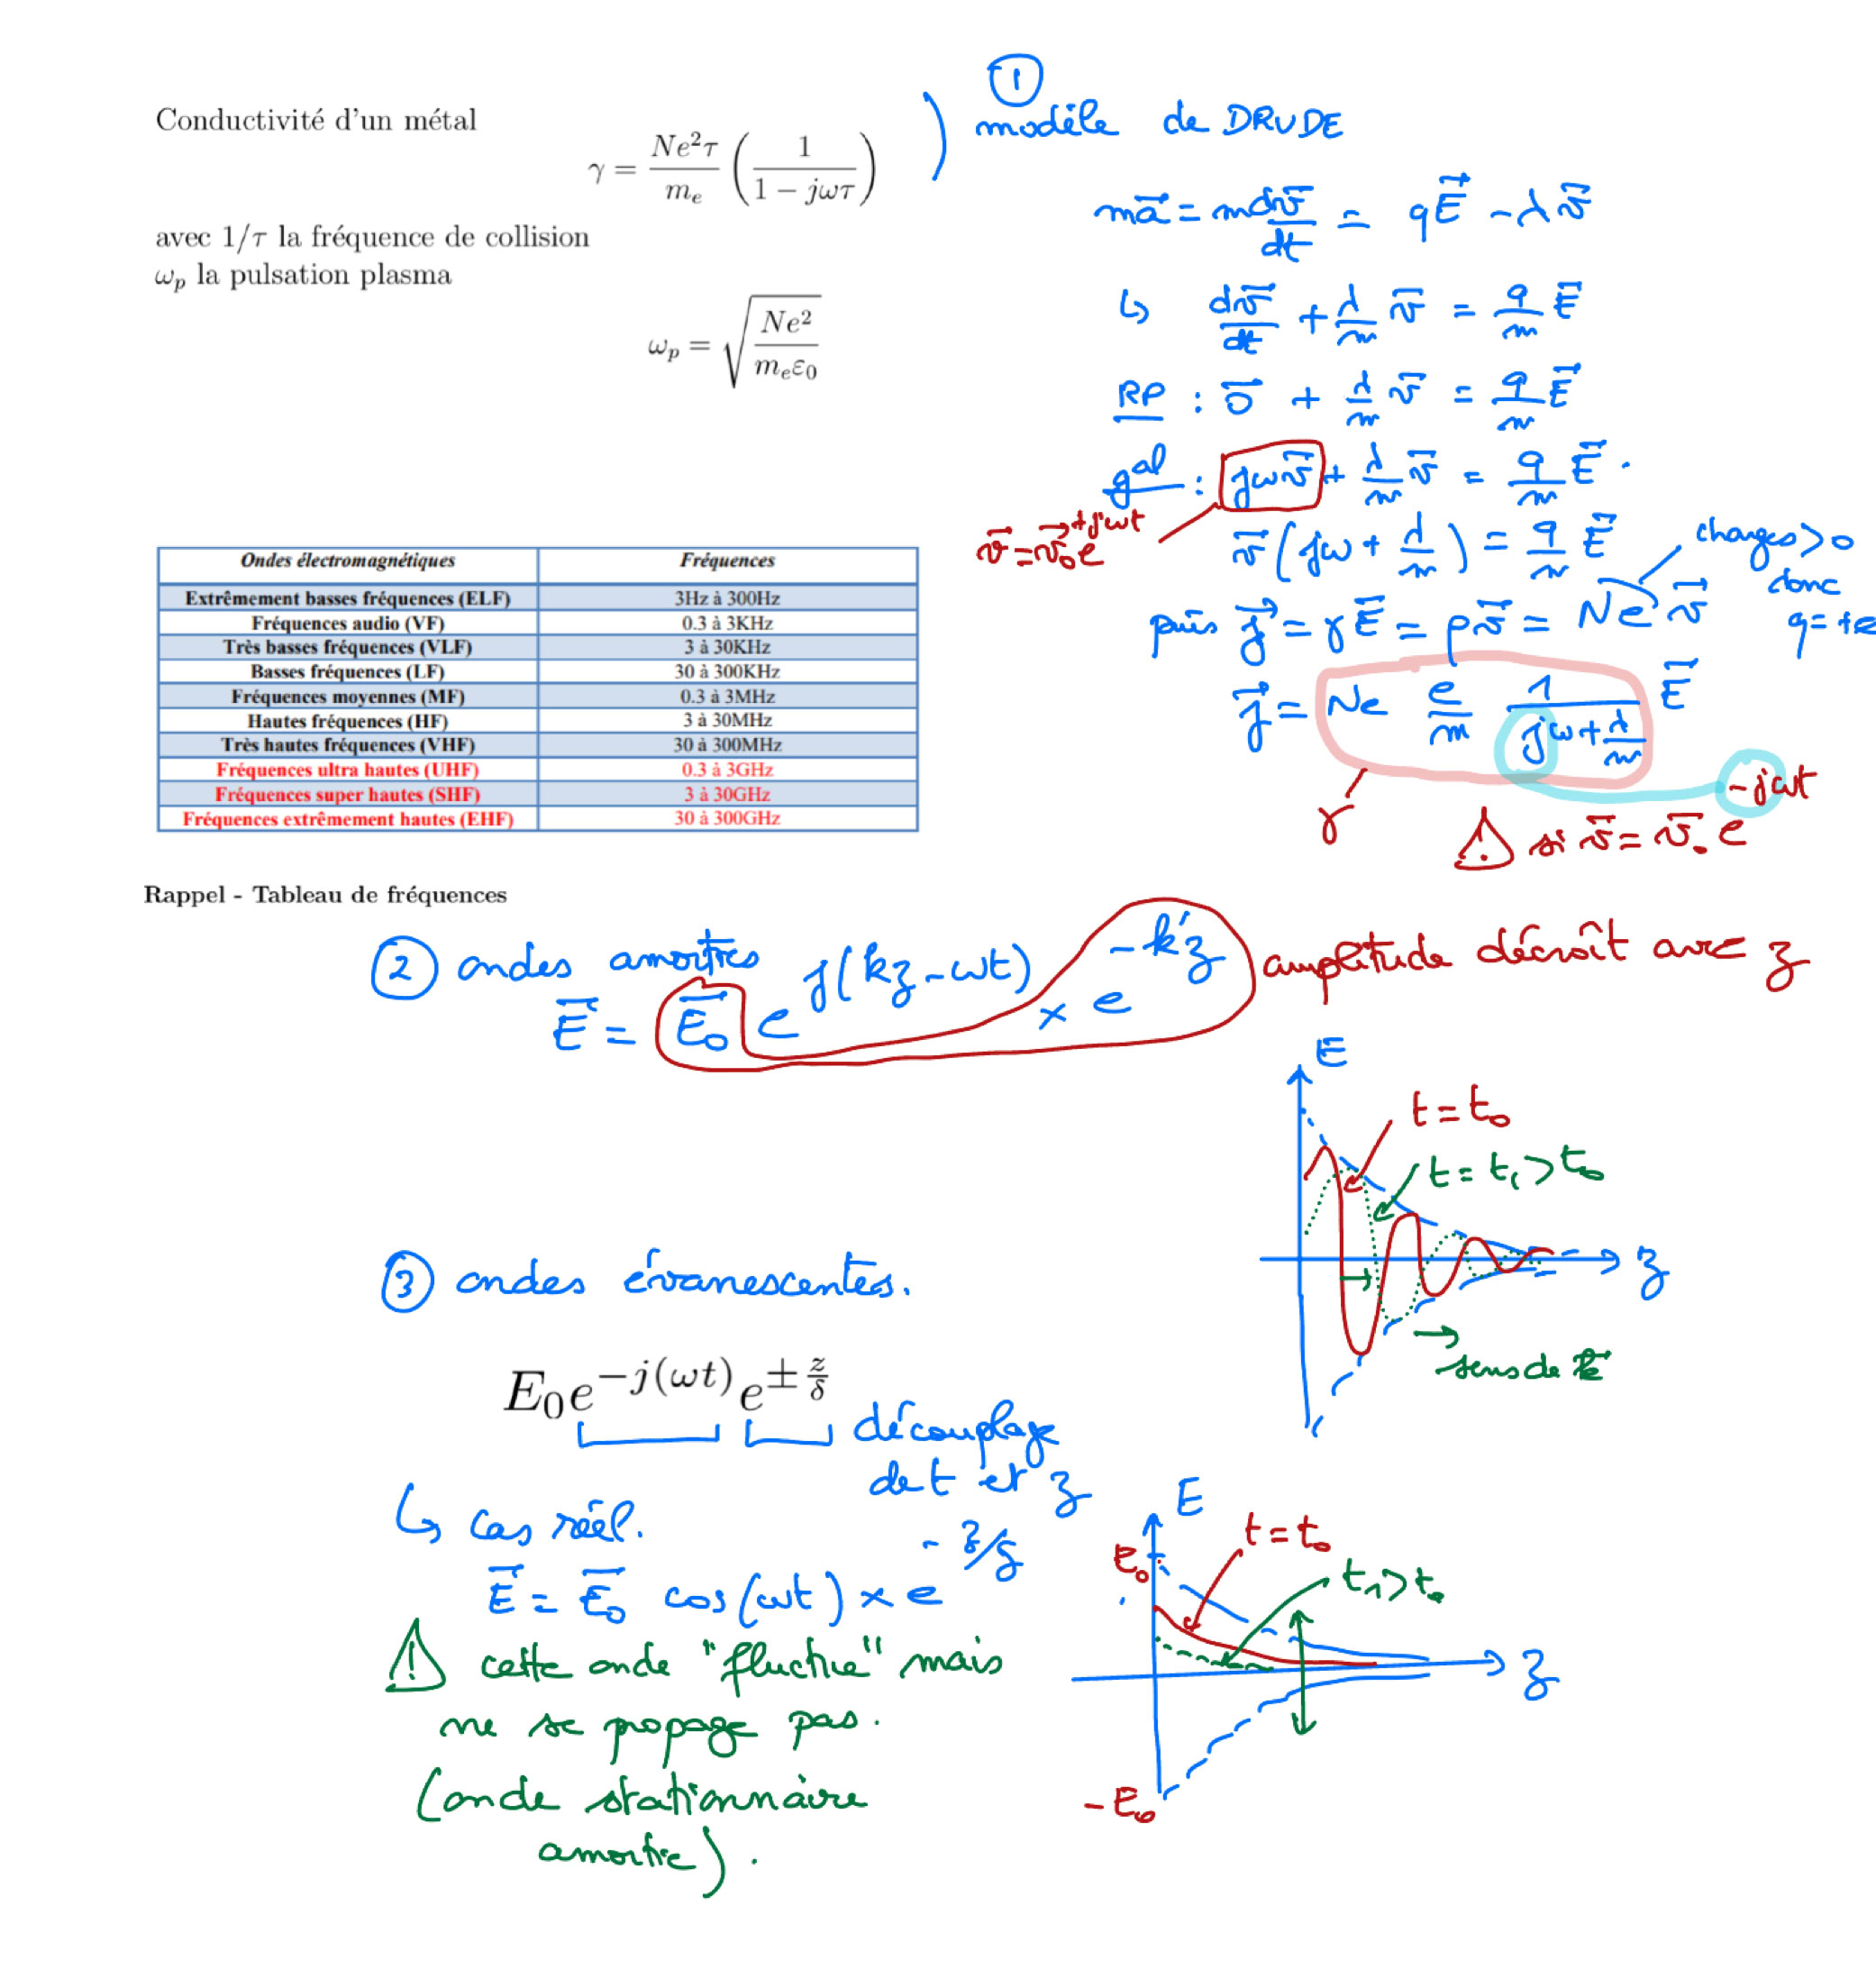 Conductivité d'un métal
γ = Ne²τ/mₑ (1/(1 − jωτ))
avec 1/τ la fréquence de collision
ωₚ la pulsation plasma
ωₚ = √(Ne²/(mₑε₀))
① modèle de DRUDE
ma⃗ = m dv⃗/dt = qE⃗ − λv⃗
↳ dv⃗/dt + λ/m v⃗ = q/m E⃗
RP : 0⃗ + λ/m v⃗ = q/m E⃗
gal : jωv⃗ + λ/m v⃗ = q/m E⃗.
v⃗ = v⃗₀e^{+jωt}
v⃗ (jω + λ/m) = q/m E⃗
charges > 0
donc
q = +e
puis j⃗ = γE⃗ = ρv⃗ = Ne v⃗
j⃗ = Ne e/m 1/(jω + λ/m) E⃗
γ
⚠ si v⃗ = v⃗₀ e^{−jωt}
Ondes électromagnétiques Fréquences
Extrêmement basses fréquences (ELF) 3Hz à 300Hz
Fréquences audio (VF) 0.3 à 3KHz
Très basses fréquences (VLF) 3 à 30KHz
Basses fréquences (LF) 30 à 300KHz
Fréquences moyennes (MF) 0.3 à 3MHz
Hautes fréquences (HF) 3 à 30MHz
Très hautes fréquences (VHF) 30 à 300MHz
Fréquences ultra hautes (UHF) 0.3 à 3GHz
Fréquences super hautes (SHF) 3 à 30GHz
Fréquences extrêmement hautes (EHF) 30 à 300GHz
Rappel - Tableau de fréquences
② ondes amorties
E⃗ = E⃗₀ e^{j(kz−ωt)} × e^{−k'z}
amplitude décroît avec z
E
t = t₀
t = t₁ > t₀
z
sens de k⃗
③ ondes évanescentes.
E₀e^{−j(ωt)} e^{± z/δ}
découplage
de t et z
↳ cas réel.
E⃗ = E⃗₀ cos(ωt) × e^{−z/δ}
⚠ cette onde "fluctue" mais
ne se propage pas.
(onde stationnaire
amortie).
E
E₀
t = t₀
t₁ > t₀
z
−E₀